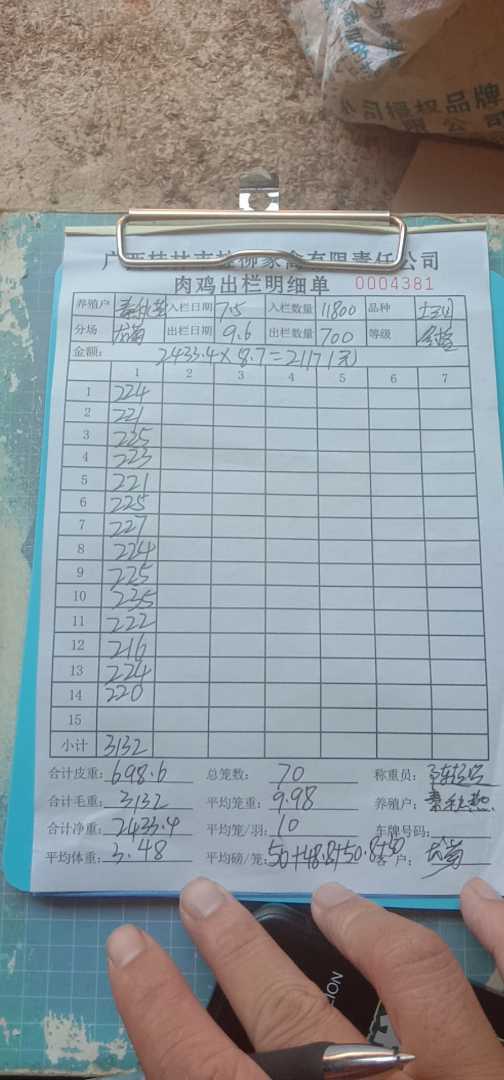 公司授权品牌
公司
有限责任公司
肉鸡出栏明细单 0004381
养殖户 入栏日期 7.5 入栏数量 11800 品种
分场 出栏日期 9.6 出栏数量 700 等级
金额: 2433.4×8.7=21171(元)
1 2 3 4 5 6 7
1 224
2 221
3 225
4 223
5 221
6 225
7 227
8 224
9 225
10 235
11 222
12 216
13 224
14 220
15
小计 3132
合计皮重: 698.6 总笼数: 70 称重员:
合计毛重: 3132 平均笼重: 9.98 养殖户:
合计净重: 2433.4 平均笼/羽: 10 车牌号码:
平均体重: 3.48 平均磅/笼: 50+48.8+50.8+50 客户: